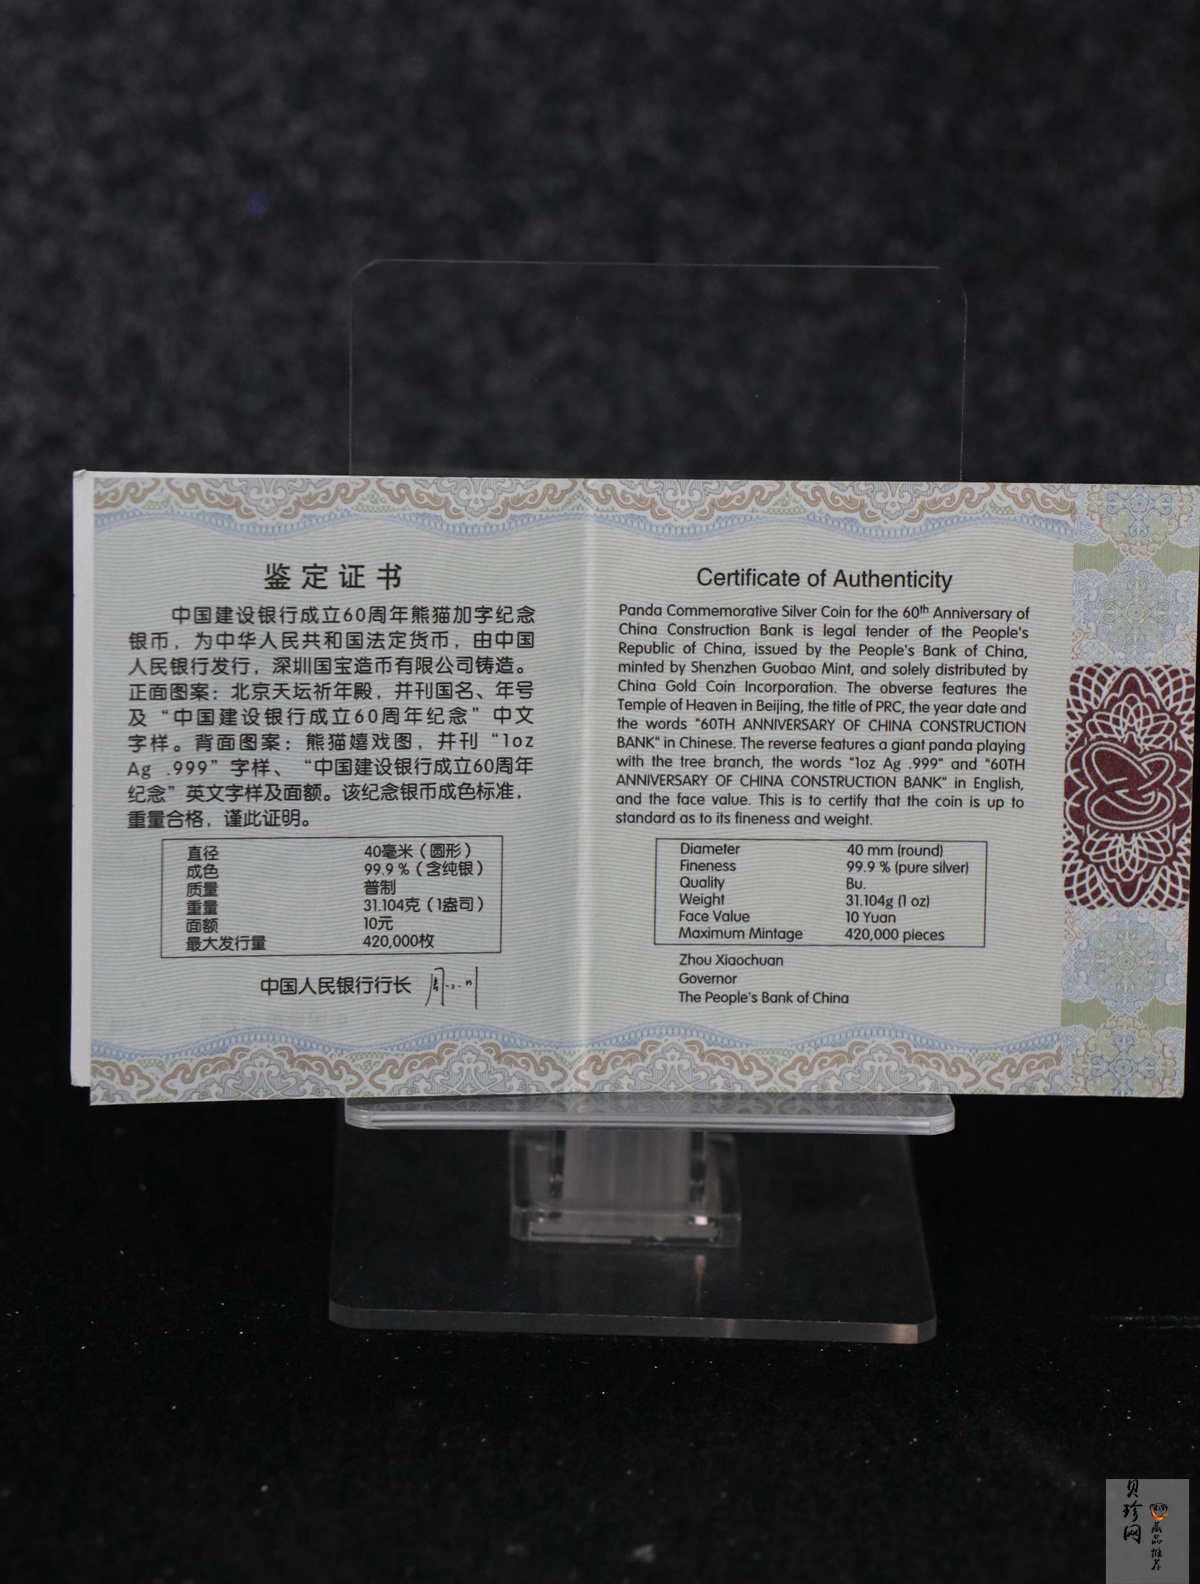 鉴定证书
中国建设银行成立60周年熊猫加字纪念
银币，为中华人民共和国法定货币，由中国
人民银行发行，深圳国宝造币有限公司铸造。
正面图案：北京天坛祈年殿，并刊国名、年号
及“中国建设银行成立60周年纪念”中文
字样。背面图案：熊猫嬉戏图，并刊“1oz
Ag .999”字样、“中国建设银行成立60周年
纪念”英文字样及面额。该纪念银币成色标准，
重量合格，谨此证明。
直径 40毫米（圆形）
成色 99.9％（含纯银）
质量 普制
重量 31.104克（1盎司）
面额 10元
最大发行量 420,000枚
中国人民银行行长
Certificate of Authenticity
Panda Commemorative Silver Coin for the 60th Anniversary of
China Construction Bank is legal tender of the People's
Republic of China, issued by the People's Bank of China,
minted by Shenzhen Guobao Mint, and solely distributed by
China Gold Coin Incorporation. The obverse features the
Temple of Heaven in Beijing, the title of PRC, the year date and
the words "60TH ANNIVERSARY OF CHINA CONSTRUCTION
BANK" in Chinese. The reverse features a giant panda playing
with the tree branch, the words "1oz Ag .999" and "60TH
ANNIVERSARY OF CHINA CONSTRUCTION BANK" in English,
and the face value. This is to certify that the coin is up to
standard as to its fineness and weight.
Diameter 40 mm (round)
Fineness 99.9 % (pure silver)
Quality Bu.
Weight 31.104g (1 oz)
Face Value 10 Yuan
Maximum Mintage 420,000 pieces
Zhou Xiaochuan
Governor
The People's Bank of China
贝珍网
藏品推荐